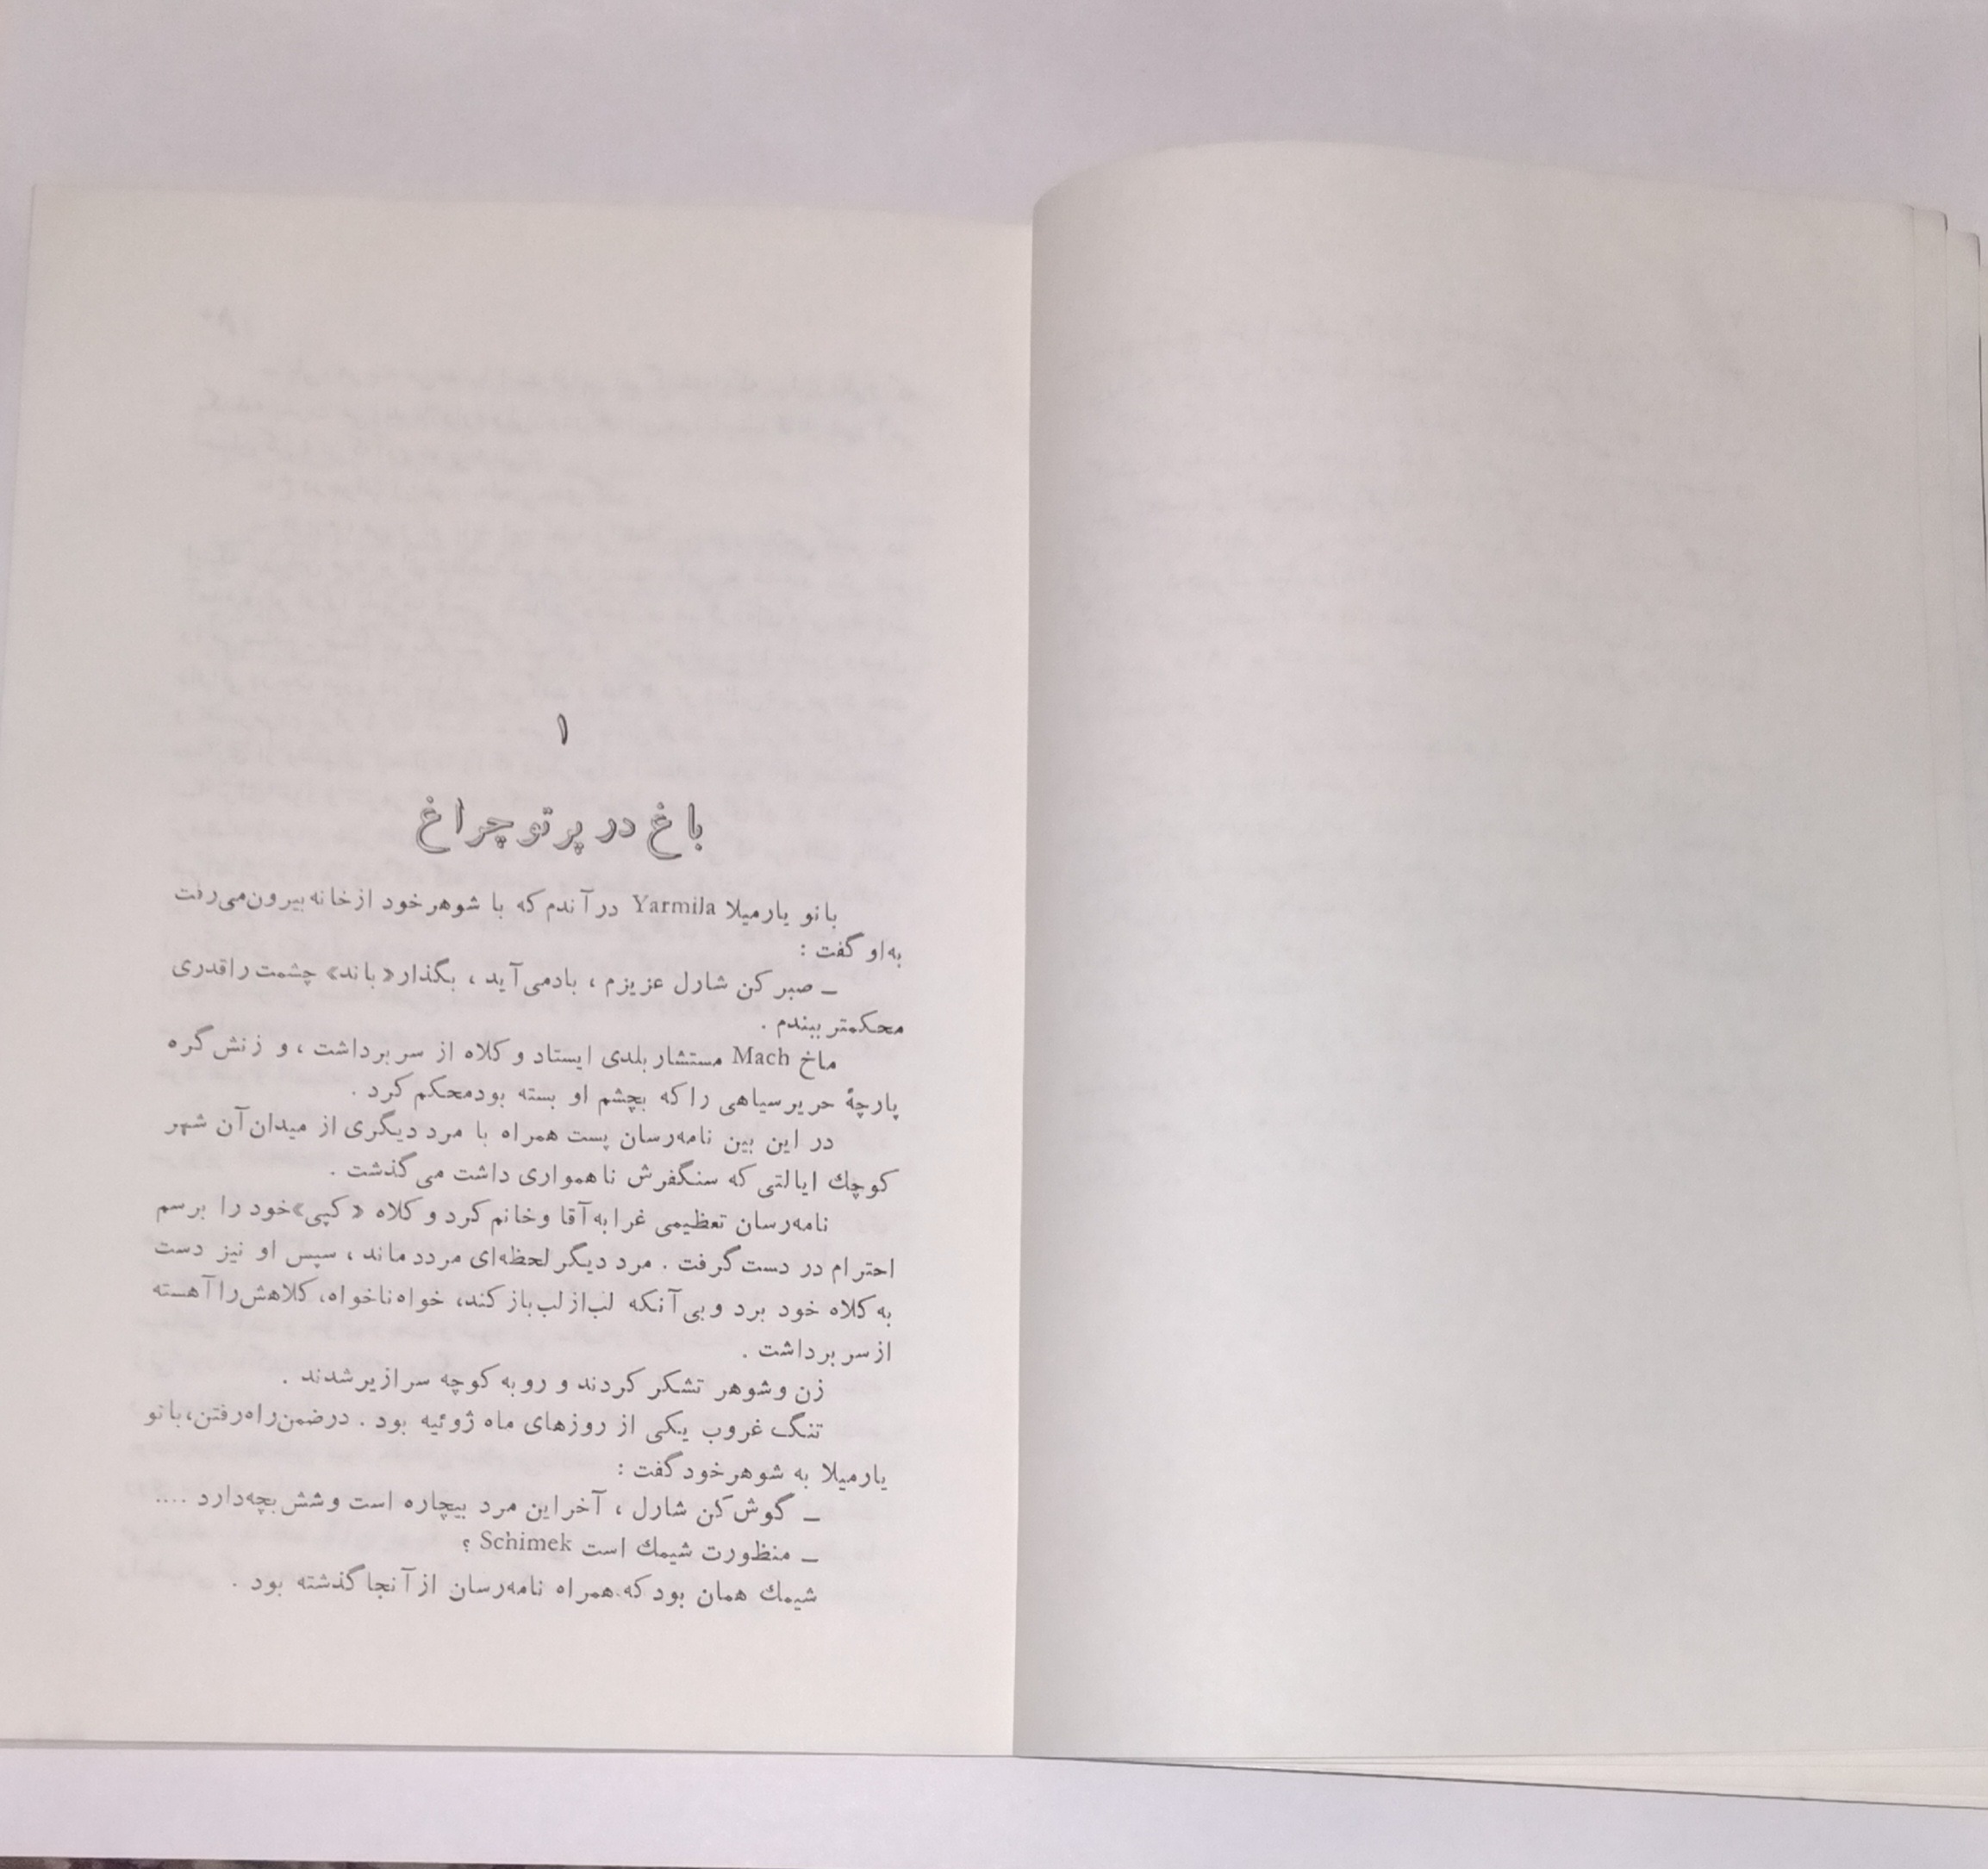 ۱
باغ در پرتو چراغ
بانو یارمیلا Yarmila در آندم که با شوهر خود از خانه بیرون می‌رفت
به‌او گفت :
ـ صبر کن شارل عزیزم ، بادمی‌آید ، بگذار «باند» چشمت را قدری
محکمتر ببندم .
ماخ Mach مستشار بلدی ایستاد و کلاه از سر برداشت ، و زنش گره
پارچهٔ حریر سیاهی را که بچشم او بسته بود محکم کرد .
در این بین نامه‌رسان پست همراه با مرد دیگری از میدان آن شهر
کوچك ایالتی که سنگفرش ناهمواری داشت می‌گذشت .
نامه‌رسان تعظیمی غرا به آقا و خانم کرد و کلاه «کپی» خود را برسم
احترام در دست گرفت . مرد دیگر لحظه‌ای مردد ماند ، سپس او نیز دست
به کلاه خود برد و بی‌آنکه لب‌از لب باز کند، خواه‌ناخواه، کلاهش را آهسته
از سر برداشت .
زن و شوهر تشکر کردند و رو به کوچه سرازیر شدند .
تنگ غروب یکی از روزهای ماه ژوئیه بود . در ضمن راه رفتن، بانو
یارمیلا به شوهر خود گفت :
ـ گوش کن شارل ، آخر این مرد بیچاره است و شش بچه دارد ....
ـ منظورت شیمك است Schimek ؟
شیمك همان بود که همراه نامه‌رسان از آنجا گذشته بود .